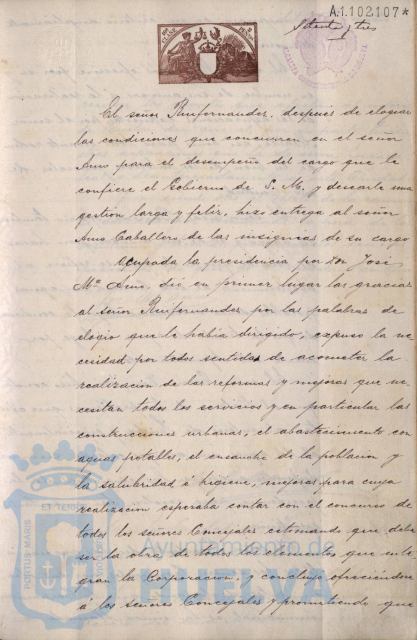 A.1.102107*
Setenta y tres
ALCALDIA
HUELVA
El señor Ruifernandez, después de elogiar
las condiciones que concurren en el señor
Amo para el desempeño del cargo que le
confiere el Gobierno de S. M. y desearle una
gestión larga y feliz, hizo entrega al señor
Amo Caballero de las insignias de su cargo
Ocupada la presidencia por Don José
Mª Amo, dió en primer lugar las gracias
al señor Ruifernandez por las palabras de
elogio que le había dirigido; expuso la ne
cesidad por todos sentidos de acometer la
realización de las reformas y mejoras que ne
cesitan todos los servicios y en particular las
construcciones urbanas, el abastecimiento con
aguas potables, el ensanche de la población y
la salubridad é higiene, mejoras para cuya
realización esperaba contar con el concurso de
todos los señores Concejales estimando que debe
ser la obra de todos los elementos que inte
gran la Corporación, y concluyó ofreciéndose
á los señores Concejales y prometiendo que
PORTUS MARIS ET TERRE
Ayuntamiento de
HUELVA